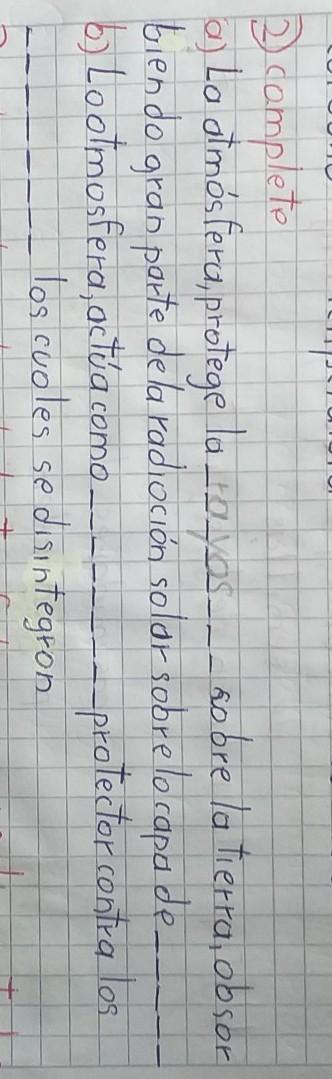 2) complete
a) La atmósfera, protege la rayos sobre la tierra, obsor
biendo gran parte de la radioción solar sobre lo capa de
b) La atmosfera, actúa como protector contra los
los cuales se disintegron